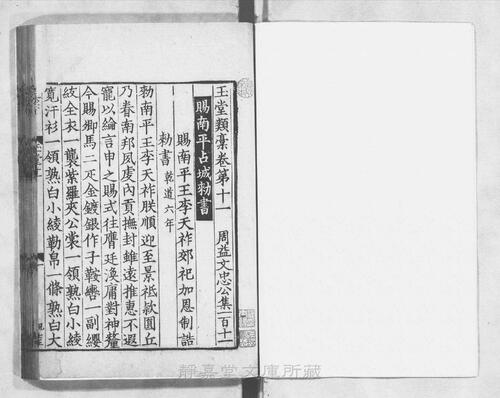 玉堂類藁卷第十一 周益文忠公集一百十一
賜南平占城勑書
賜南平王李天祚郊祀加恩制誥
勑書 乾道六年
勑南平王李天祚朕順迎至景祗款圜丘
乃眷南邦夙虔內貢撫封雖遠推惠不遐
寵以綸言申之賜式往膺廷渙庸對神釐
今賜卿馬二疋金鍍銀作子鞍轡一副纓
紱全衣一襲紫羅夾公裳一領熟白小綾
寬汗衫一領熟白小綾勒帛一條熟白大
靜嘉堂文庫所藏